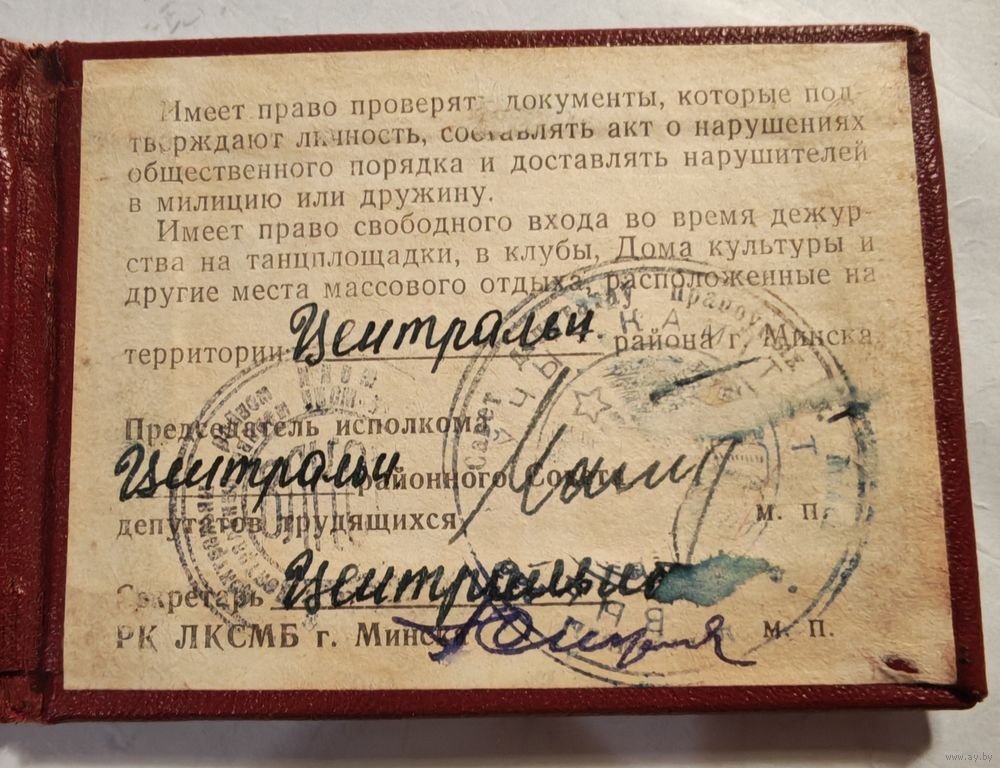 Имеет право проверять документы, которые под-
тверждают личность, составлять акт о нарушениях
общественного порядка и доставлять нарушителей
в милицию или дружину.
Имеет право свободного входа во время дежур-
ства на танцплощадки, в клубы, Дома культуры и
другие места массового отдыха, расположенные на
территории Центральн. района г. Минска.
Председатель исполкома
Центральн районного Совета
депутатов трудящихся
м. п.
Секретарь Центрального
РК ЛКСМБ г. Минска
м. п.
Савет
www.ay.by